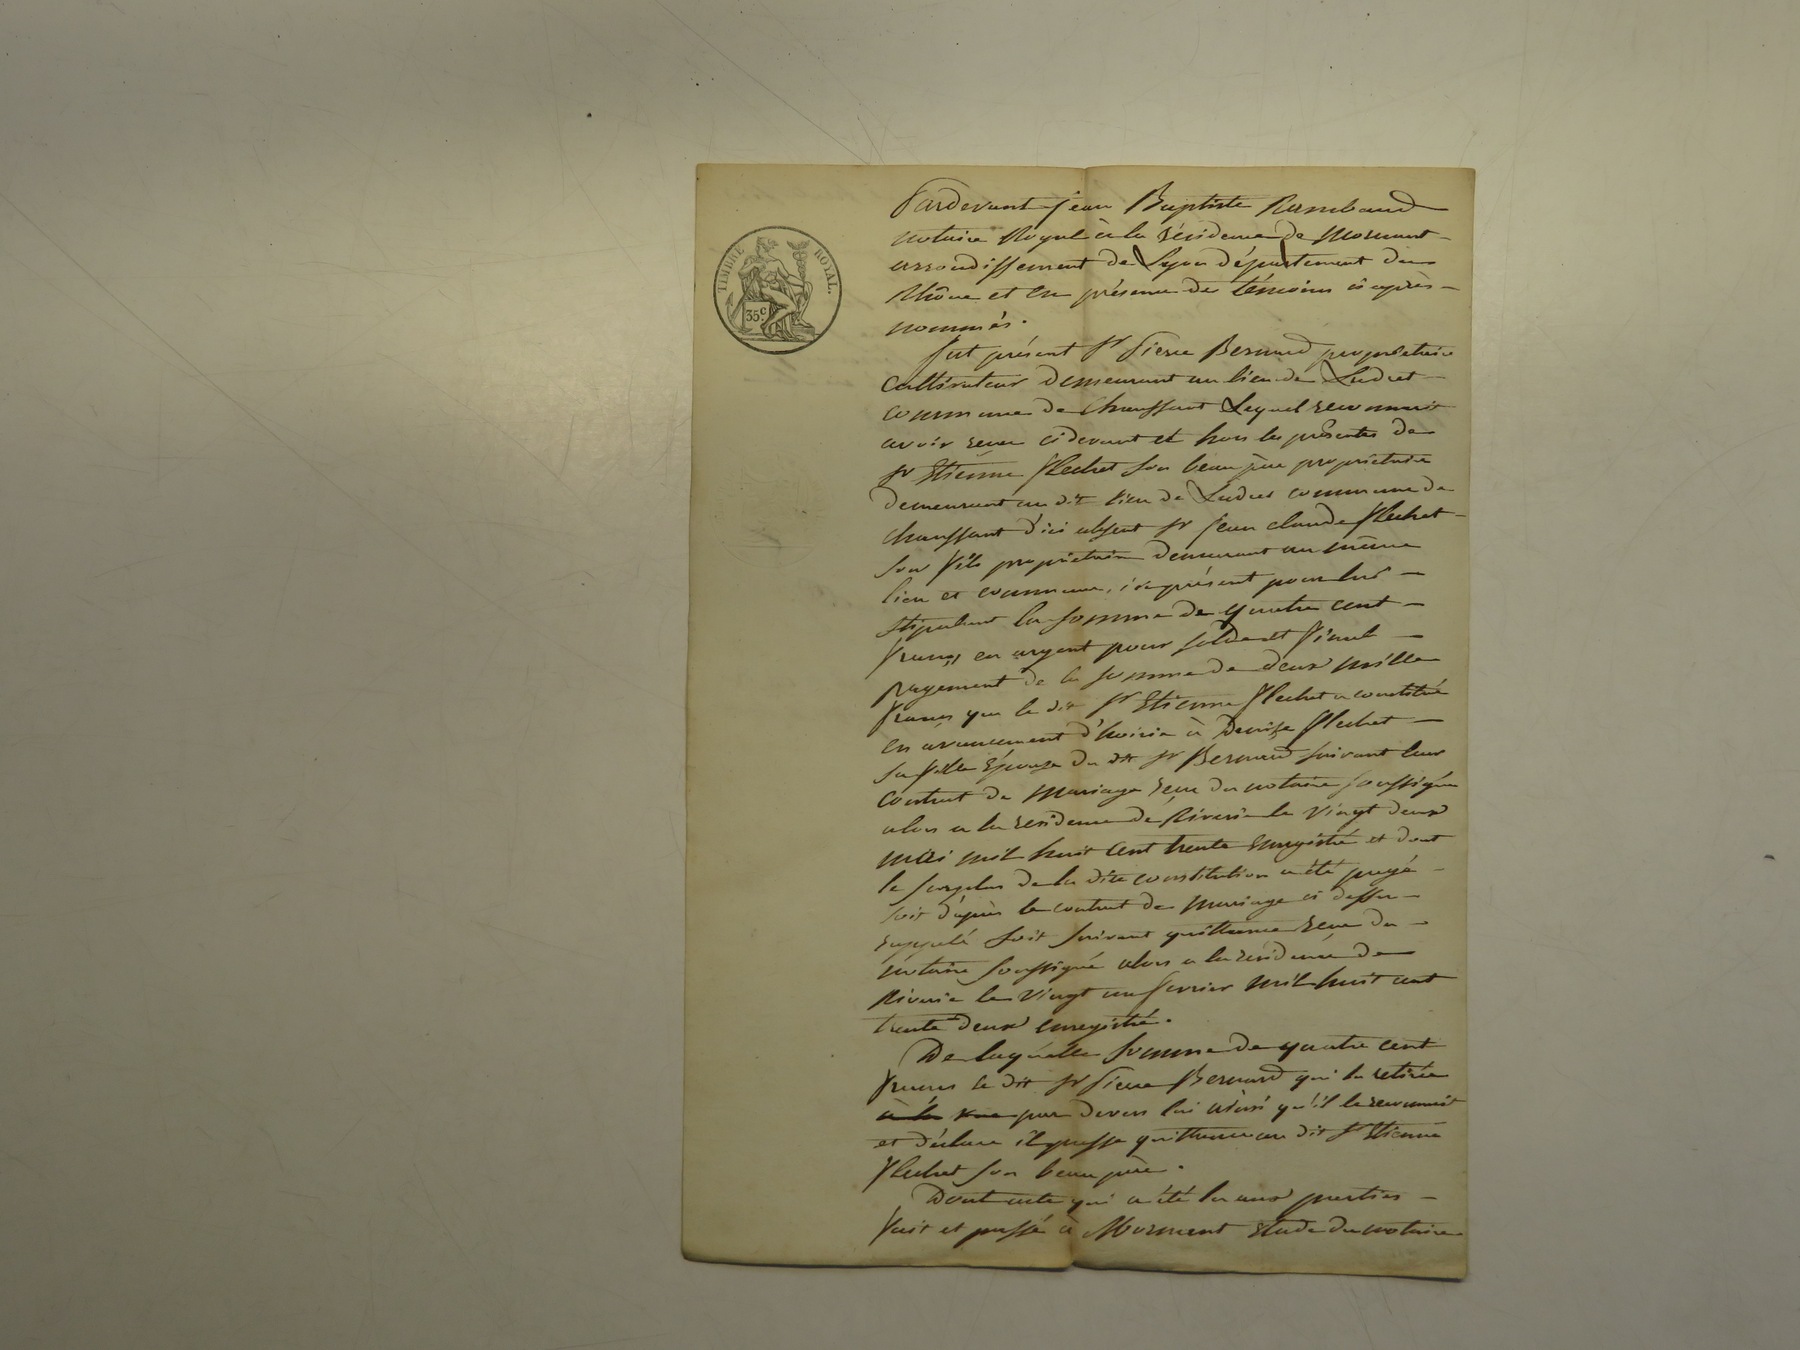 TIMBRE ROYAL.
35 c.
Pardevant Jean Baptiste Rambaud
notaire Royal à la résidence de Mornant
arrondissement de Lyon département du
Rhône et en présence des témoins ci après
nommés.
fut présent Sr Pierre Bernard propriétaire
cultivateur demeurant au lieu de Ludret
commune de Chaussant Lequel reconnait
avoir reçu ci devant et hors les présentes de
Sr Etienne Flechet son beau père propriétaire
demeurant au dit lieu de Ludret commune de
Chaussant d'ici absent Sr Jean Claude Flechet
son fils propriétaire demeurant au même
lieu et commune, ici présent pour lui
stipulant la somme de quatre cent
francs en argent pour solde et final
payement de la somme de deux mille
francs que le dit Sr Etienne Flechet a constitué
en avancement d'hoirie à Denize Flechet
sa fille Epouse du dit Sr Bernard suivant leur
contrat de mariage reçu du notaire soussigné
alors a la residence de Riverie le vingt deux
mai mil huit cent trente enregistré et dont
le surplus de la dite constitution a été payé
soit d'après le contrat de mariage ci dessu
rappelé soit suivant quittance reçue du
notaire soussigné alors a la résidence de
Riverie le vingt un fevrier mil huit cent
trente deux enregistré.
De laquelle somme de quatre cent
francs le dit Sr Pierre Bernard qui la retirée
à la vue par devers lui ainsi qu'il le reconnait
et déclare il passe quittance au dit Sr Etienne
Flechet son beau père.
Dont acte qui a été lu aux parties
fait et passé à Mornant Etude du notaire